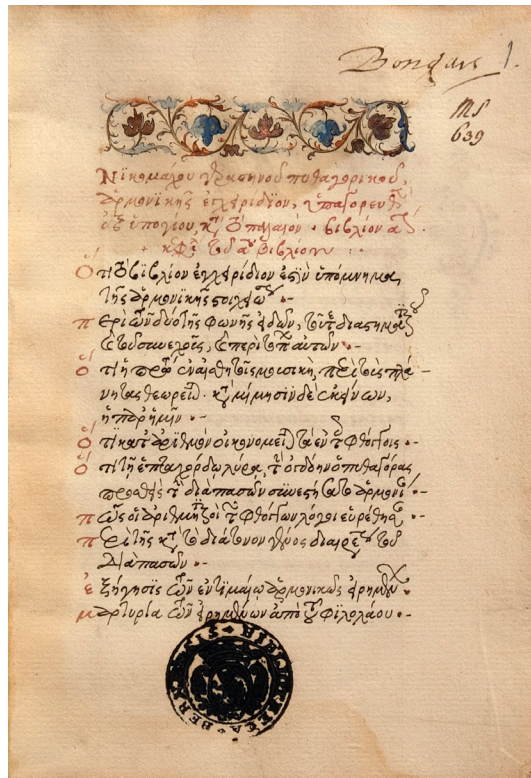 Bongars 1.
MS
639
Νικομάχου γερασηνοῦ πυθαγορικοῦ,
ἁρμονικῆς ἐγχειρίδιον, ὑπαγορευθὲν
ἐξ ὑπογίου, κατὰ τὸ παλαιόν · βιβλίον α΄.
κεφάλαια τοῦ α΄ βιβλίου :
Ὅτι τὸ βιβλίον ἐγχειρίδιον ἐστὶν ὑπόμνημα,
τῆς ἁρμονικῆς στοιχειώσεως ·
περὶ τῶν δύο τῆς φωνῆς εἰδῶν, τοῦ τε διαστηματικοῦ
καὶ τοῦ συνεχοῦς, καὶ περὶ τόπων αὐτῶν ·
ὅτι ἡ πρώτη ἐν αἰσθητοῖς μουσικὴ, περὶ τοὺς πλά
νητας θεωρεῖται · κατὰ μίμησιν δὲ ἐκείνων,
ἡ παρ' ἡμῖν ·
ὅτι κατ' ἀριθμὸν οἰκονομεῖται τὰ ἐν τοῖς φθόγγοις ·
ὅτι τῇ ἑπταχόρδῳ λύρᾳ, τὴν ὀγδόην ὁ πυθαγόρας
προσθεὶς τὴν διὰ πασῶν συνεστήσατο ἁρμονίαν ·
πῶς οἱ ἀριθμητικοὶ τῶν φθόγγων λόγοι εὑρέθησαν ·
περὶ τῆς κατὰ τὸ διάτονον γένος διαιρέσεως τοῦ
διαπασῶν ·
ἐξήγησις τῶν ἐν τιμαίῳ ἁρμονικῶς εἰρημένων ·
μαρτυρία τῶν εἰρημένων ἀπὸ τῶν φιλολάου ·